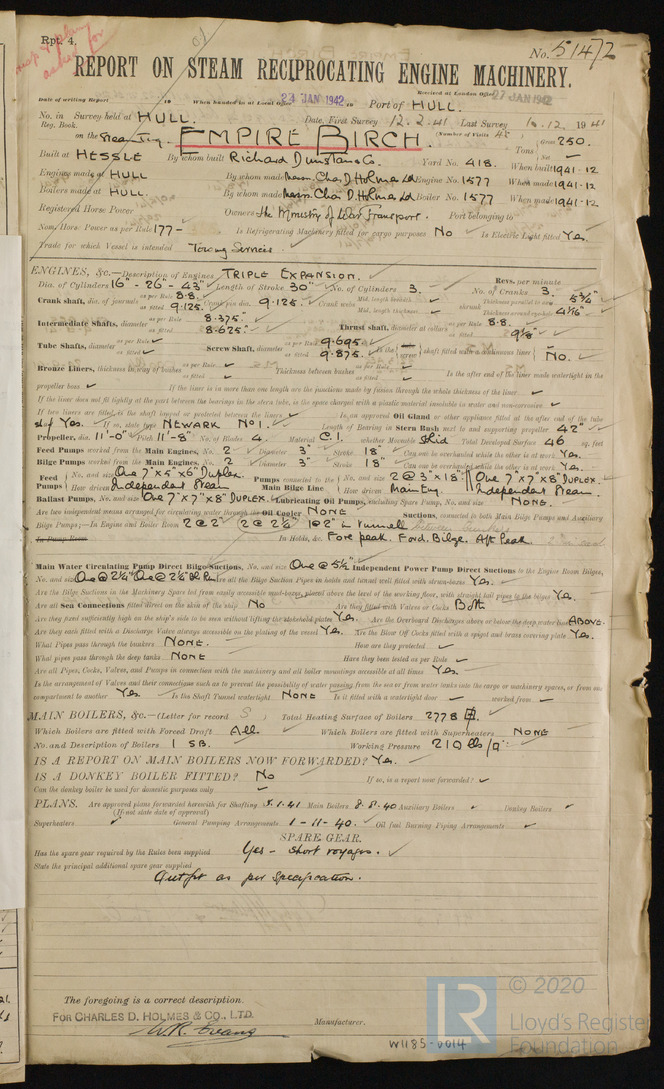 Rpt. 4.
No. 51472
REPORT ON STEAM RECIPROCATING ENGINE MACHINERY.
Received at London Office 27 JAN 1942
Date of writing Report 19 When handed in at Local Office 24 JAN 1942 19 Port of HULL.
No. in Reg. Book. Survey held at HULL. Date, First Survey 12.2.41 Last Survey 10.12.1941
on the Steam Tug. EMPIRE BIRCH. (Number of Visits 45) Tons Gross 250. Net
Built at HESSLE By whom built Richard Dunston & Co. Yard No. 418. When built 1941-12
Engines made at HULL By whom made Messrs. Chas D. Holmes Ld Engine No. 1577 When made 1941-12
Boilers made at HULL. By whom made Messrs. Chas D. Holmes Ld Boiler No. 1577 When made 1941-12
Registered Horse Power Owners the Ministry of War Transport. Port belonging to
Nom. Horse Power as per Rule 177 Is Refrigerating Machinery fitted for cargo purposes No Is Electric Light fitted Yes.
Trade for which Vessel is intended Towing Services.
ENGINES, &c.—Description of Engines TRIPLE EXPANSION. Revs. per minute
Dia. of Cylinders 16" - 26 - 43" Length of Stroke 30" No. of Cylinders 3. No. of Cranks 3.
Crank shaft, dia. of journals as per Rule 8.8. as fitted 9.125. Crank pin dia. 9.125. Crank webs Mid. length breadth Mid. length thickness shrunk Thickness parallel to axis 5¾" Thickness around eyehole 4 1/16"
Intermediate Shafts, diameter as per Rule 8.375" as fitted 8.625" Thrust shaft, diameter at collars as per Rule 8.8. as fitted 9⅛"
Tube Shafts, diameter as per Rule as fitted Screw Shaft, diameter as per Rule 9.695 as fitted 9.875. Is the tube screw shaft fitted with a continuous liner No.
Bronze Liners, thickness in way of bushes as per Rule as fitted Thickness between bushes as per Rule as fitted Is the after end of the liner made watertight in the
propeller boss If the liner is in more than one length are the junctions made by fusion through the whole thickness of the liner
If the liner does not fit tightly at the part between the bearings in the stern tube, is the space charged with a plastic material insoluble in water and non-corrosive
If two liners are fitted, is the shaft lapped or protected between the liners Is an approved Oil Gland or other appliance fitted at the after end of the tube
shaft Yes. If so, state type NEWARK No 1. Length of Bearing in Stern Bush next to and supporting propeller 42"
Propeller, dia. 11'-0" Pitch 11'-8" No. of Blades 4. Material C.I. whether Moveable Solid Total Developed Surface 46 sq. feet
Feed Pumps worked from the Main Engines, No. 2 Diameter 3" Stroke 18" Can one be overhauled while the other is at work Yes.
Bilge Pumps worked from the Main Engines, No. 2 Diameter 3" Stroke 18" Can one be overhauled while the other is at work Yes.
Feed Pumps No. and size One 7"x5"x6" Duplex. How driven Independent Steam Pumps connected to the Main Bilge Line No. and size 2 @ 3" x 18" One 7"x7"x8" DUPLEX. How driven Main Eng. Independent Steam.
Ballast Pumps, No. and size One 7"x7"x8" DUPLEX. Lubricating Oil Pumps, including Spare Pump, No. and size NONE.
Are two independent means arranged for circulating water through the Oil Cooler NONE Suctions, connected to both Main Bilge Pumps and Auxiliary
Bilge Pumps;—In Engine and Boiler Room 2 @ 2" 2 @ 2½" 1 @ 2" in tunnell
In Pump Room In Holds, &c. Fore peak. Ford. Bilge. Aft Peak.
Main Water Circulating Pump Direct Bilge Suctions, No. and size One @ 5½" Independent Power Pump Direct Suctions to the Engine Room Bilges,
No. and size One @ 2½" One @ 2½" Are all the Bilge Suction Pipes in holds and tunnel well fitted with strum-boxes Yes.
Are the Bilge Suctions in the Machinery Space led from easily accessible mud-boxes, placed above the level of the working floor, with straight tail pipes to the bilges Yes.
Are all Sea Connections fitted direct on the skin of the ship No Are they fitted with Valves or Cocks Both
Are they fixed sufficiently high on the ship's side to be seen without lifting the stokehold plates Yes. Are the Overboard Discharges above or below the deep water line ABOVE.
Are they each fitted with a Discharge Valve always accessible on the plating of the vessel Yes. Are the Blow Off Cocks fitted with a spigot and brass covering plate Yes.
What Pipes pass through the bunkers NONE. How are they protected
What pipes pass through the deep tanks NONE Have they been tested as per Rule
Are all Pipes, Cocks, Valves, and Pumps in connection with the machinery and all boiler mountings accessible at all times Yes.
Is the arrangement of Valves and their connections such as to prevent the possibility of water passing from the sea or from water tanks into the cargo or machinery spaces, or from one
compartment to another Yes. Is the Shaft Tunnel watertight NONE Is it fitted with a watertight door worked from
MAIN BOILERS, &c.—(Letter for record S) Total Heating Surface of Boilers 2778
Which Boilers are fitted with Forced Draft All. Which Boilers are fitted with Superheaters NONE
No. and Description of Boilers 1 S.B. Working Pressure 210 lbs/□"
IS A REPORT ON MAIN BOILERS NOW FORWARDED? Yes.
IS A DONKEY BOILER FITTED? No If so, is a report now forwarded?
Can the donkey boiler be used for domestic purposes only
PLANS. Are approved plans forwarded herewith for Shafting 8.1.41 Main Boilers 8.8.40 Auxiliary Boilers Donkey Boilers
(If not state date of approval)
Superheaters General Pumping Arrangements 1-11-40. Oil fuel Burning Piping Arrangements
SPARE GEAR.
Has the spare gear required by the Rules been supplied Yes - short voyages.
State the principal additional spare gear supplied
Outfit as per Specification.
The foregoing is a correct description.
FOR CHARLES D. HOLMES & CO., LTD.
W.R. Evans Manufacturer.
W1185-0014
LR
© 2020
Lloyd's Register
Foundation